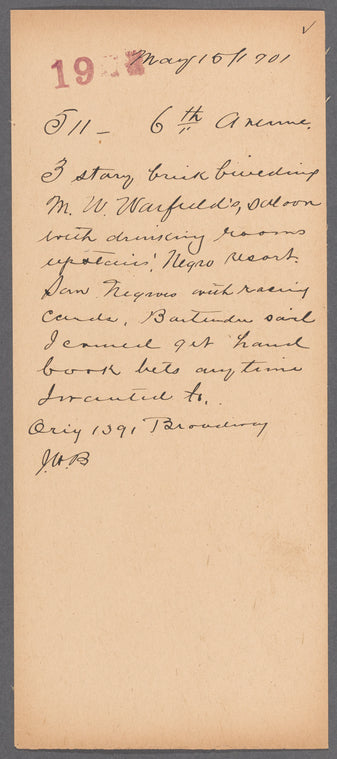 ✓
19 May 15/1901
511 - 6th Avenue.
3 story brick building
M. W. Warfield's, saloon
with drinking rooms
upstairs', Negro resort.
Saw Negroes with racing
cards, Bartender said
I could get hand
book bets anytime
I wanted to.
Orig 1391 Broadway
J.W.B